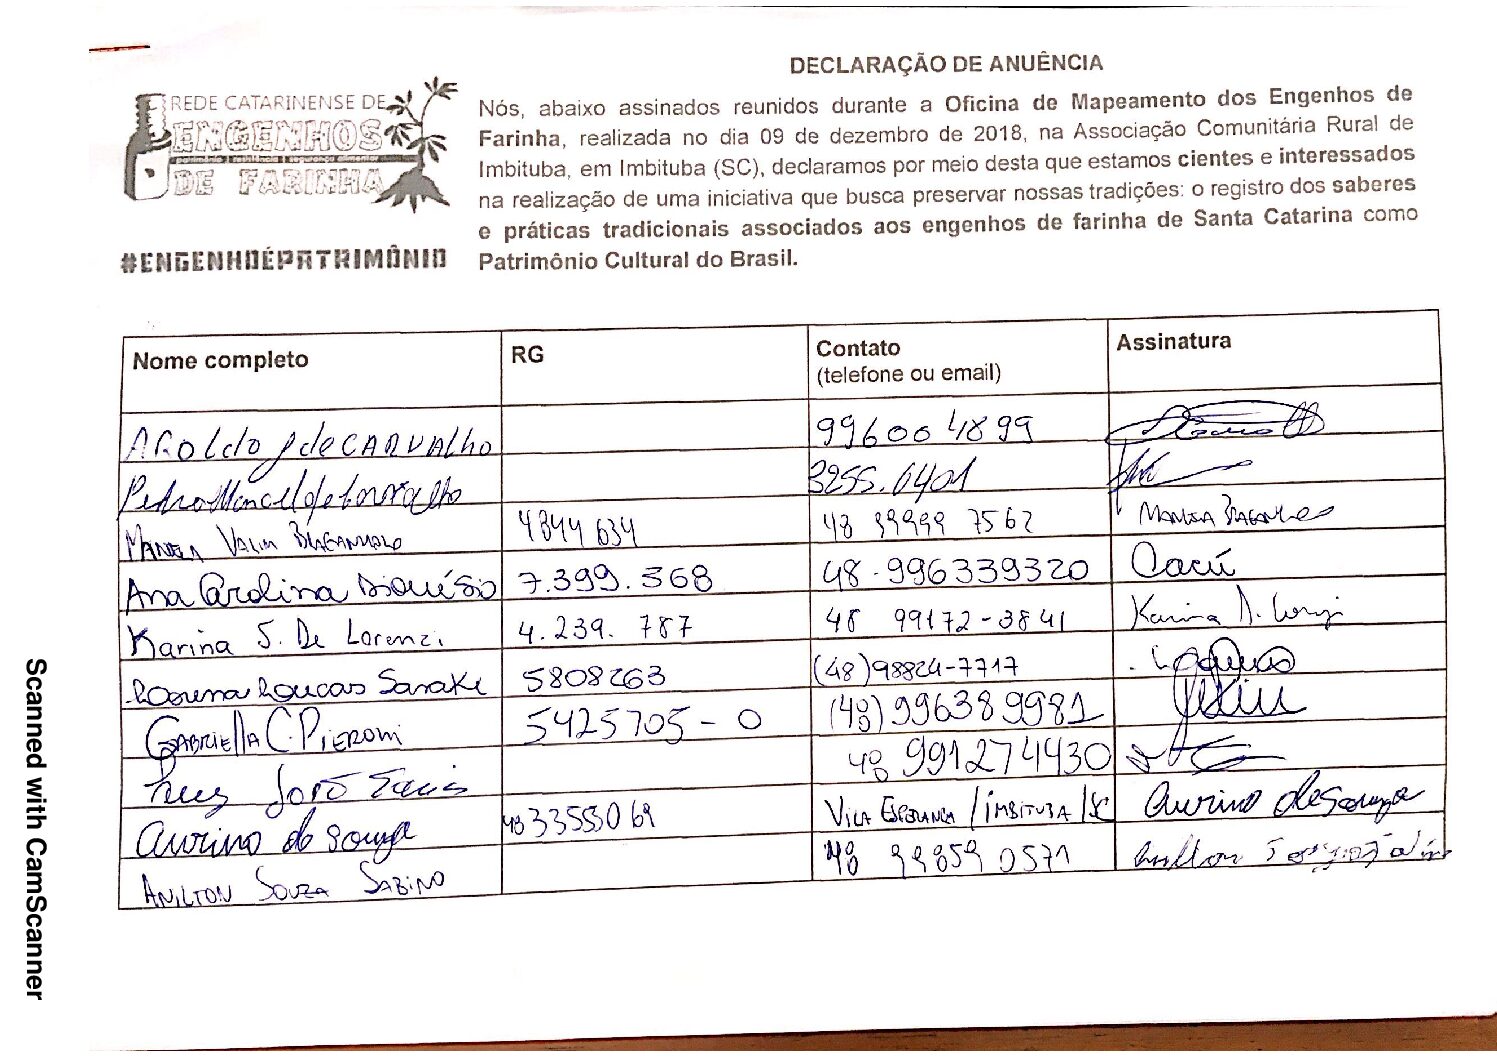 DECLARAÇÃO DE ANUÊNCIA
REDE CATARINENSE DE
ENGENHOS
patrimônio | resistência | segurança alimentar
DE FARINHA
#ENGENHOÉPATRIMÔNIO
Nós, abaixo assinados reunidos durante a Oficina de Mapeamento dos Engenhos de
Farinha, realizada no dia 09 de dezembro de 2018, na Associação Comunitária Rural de
Imbituba, em Imbituba (SC), declaramos por meio desta que estamos cientes e interessados
na realização de uma iniciativa que busca preservar nossas tradições: o registro dos saberes
e práticas tradicionais associados aos engenhos de farinha de Santa Catarina como
Patrimônio Cultural do Brasil.
Nome completo RG Contato Assinatura
(telefone ou email)
AROLdo J de CARVAlho 99600 4899
Pedro Manoel de Carvalho 3255.6401
MANUELA VALIM BRAGANHOLO 4844 634 48 99999 7562 MANUELA BRAGANHOLO
Ana Carolina Dionísio 7.399.368 48-996339320 Cacú
Karina S. De Lorenzi 4.239.787 48 99172-3841 Karina
Loucas Sasaki 5808263 (48)98824-7717
GABRIELLA C. PIERONI 5425705-0 (48) 996389981
João 48 991274430
Aurino de Souza 48 33553069 VILA ESPERANÇA / IMBITUBA / SC Aurino de souza
ANILTON SOUZA SABINO 48 99859 0571
Scanned with CamScanner